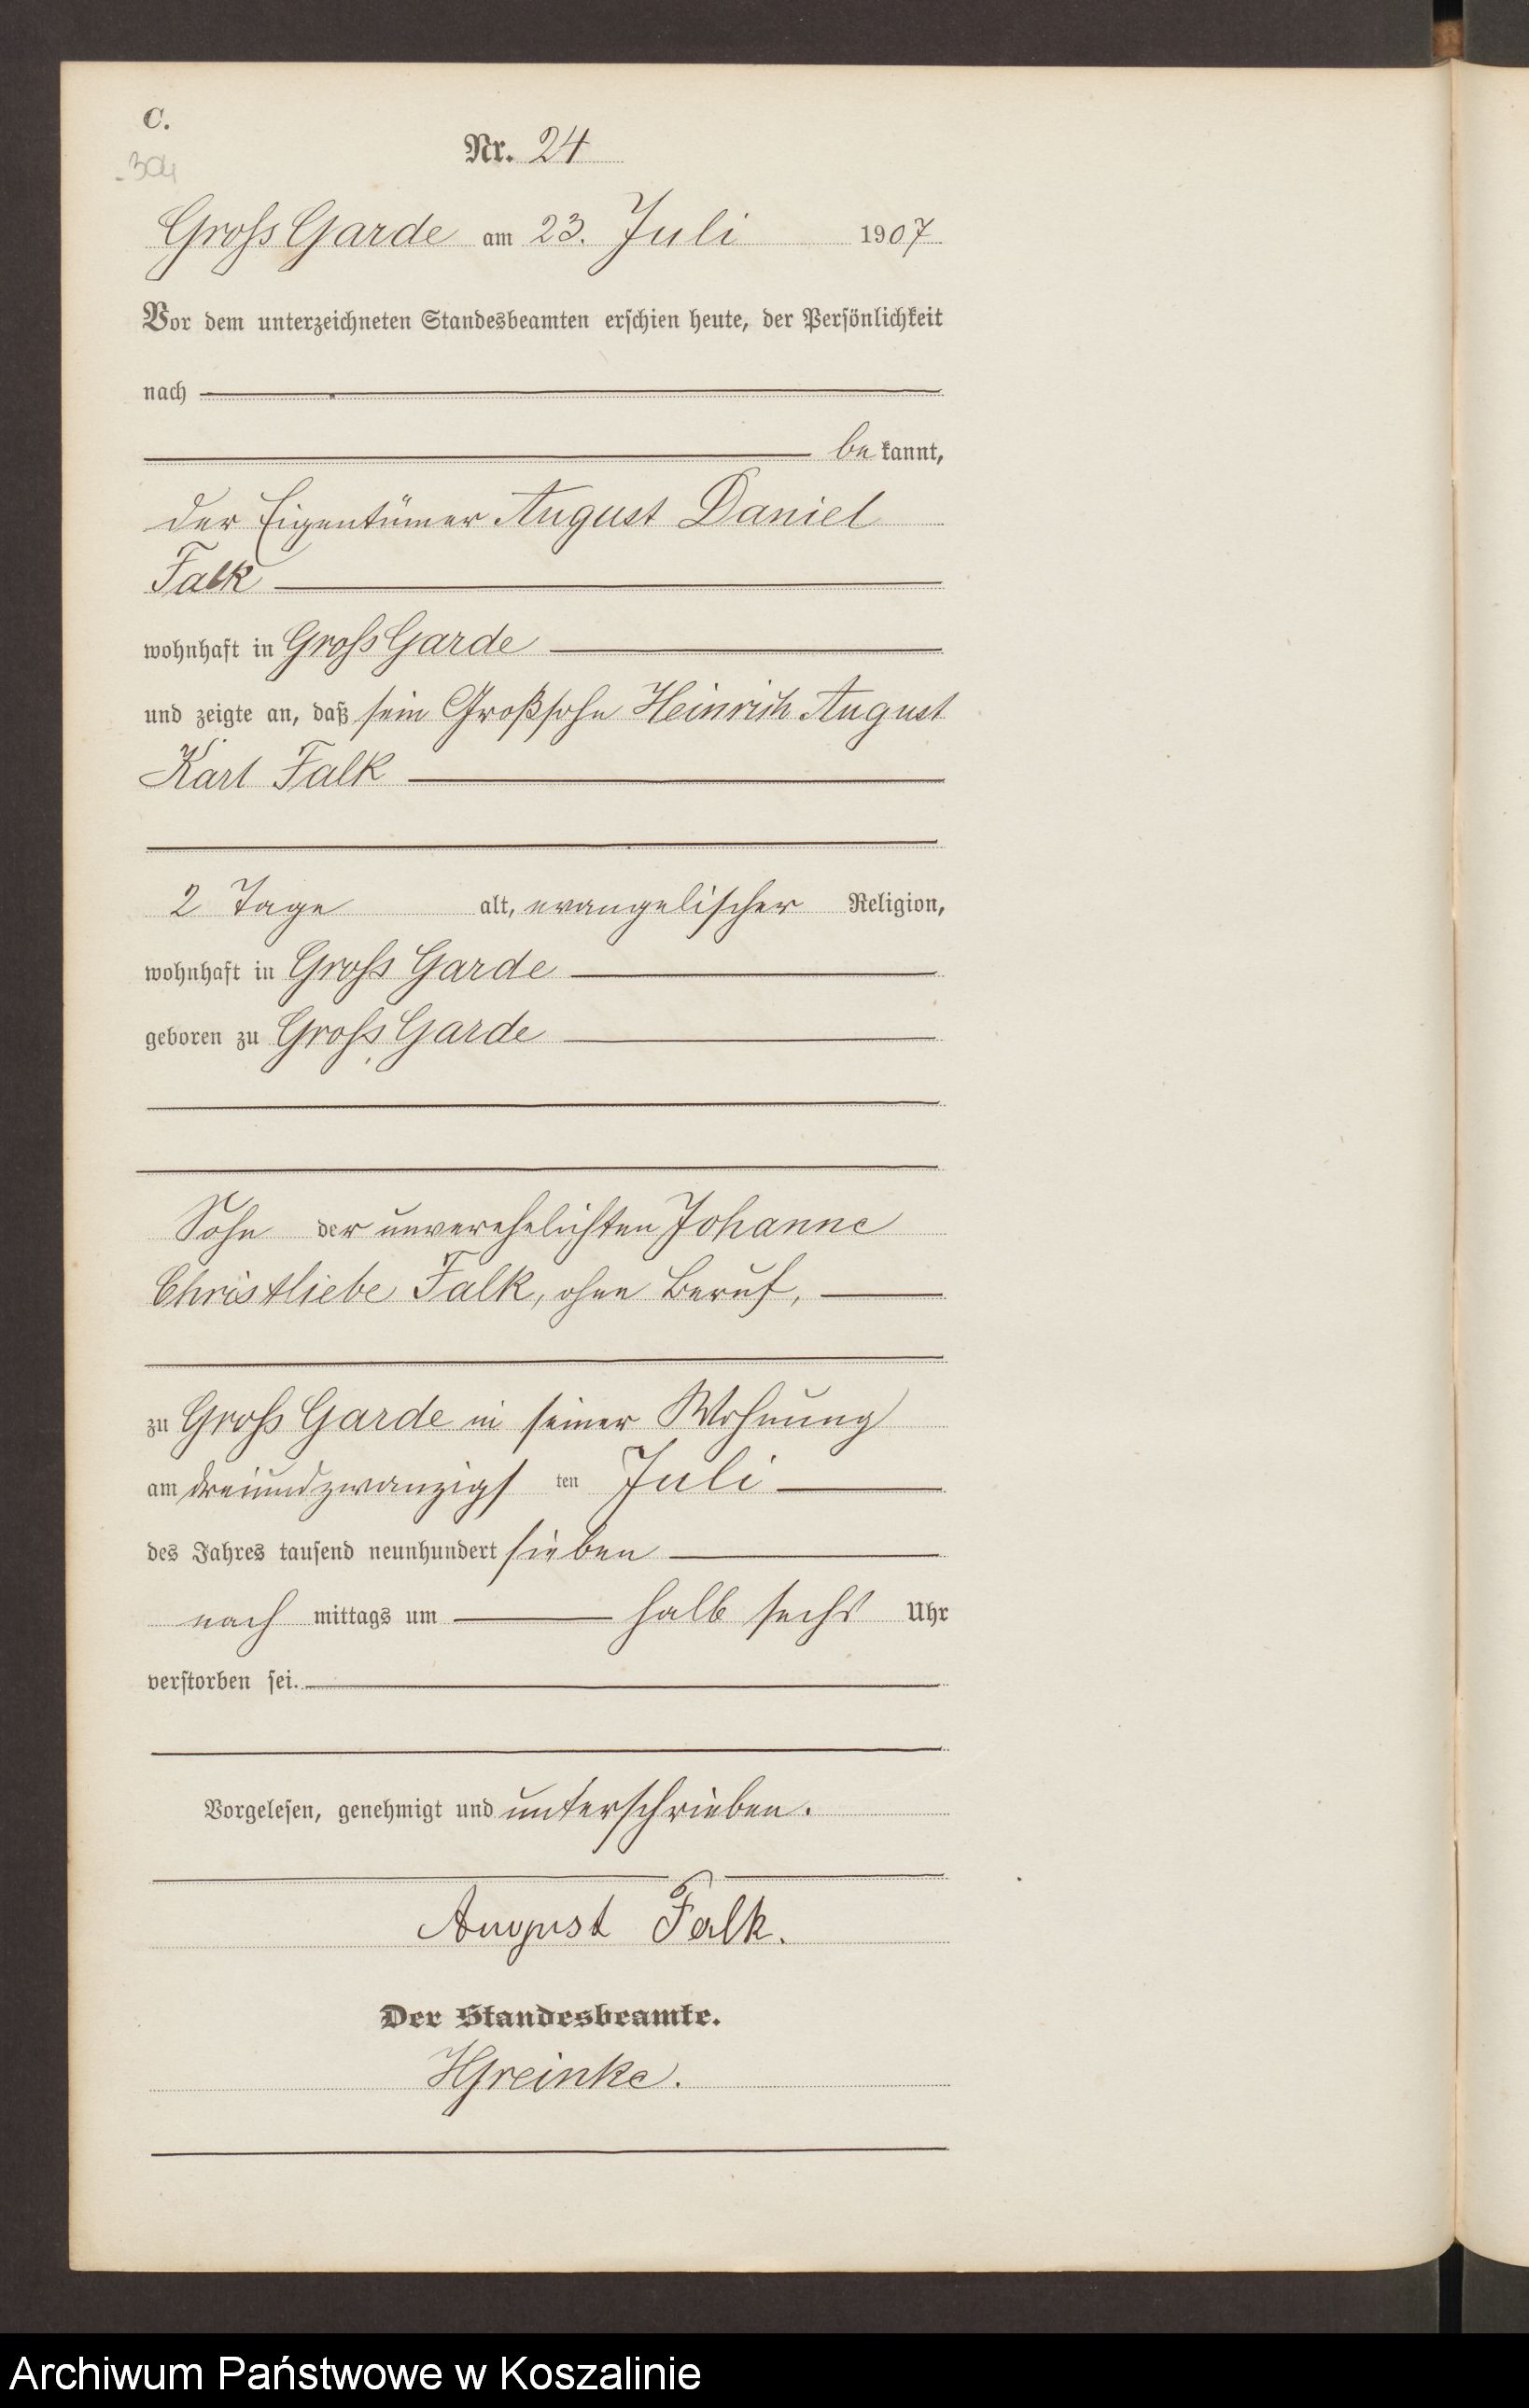 C.
304
Nr. 24
Gross Garde am 23. Juli 1907
Vor dem unterzeichneten Standesbeamten erschien heute, der Persönlichkeit
nach
be kannt,
der Eigentümer August Daniel
Falk
wohnhaft in Gross Garde
und zeigte an, daß sein Großsohn Heinrich August
Karl Falk
2 Tage alt, evangelischer Religion,
wohnhaft in Gross Garde
geboren zu Gross Garde
Sohn der unverehelichten Johanne
Christliebe Falk, ohne Beruf,
zu Gross Garde in seiner Wohnung
am dreiundzwanzigs ten Juli
des Jahres tausend neunhundert sieben
nach mittags um halb sechs Uhr
verstorben sei.
Vorgelesen, genehmigt und unterschrieben.
August Falk.
Der Standesbeamte.
HGreinke.
Archiwum Państwowe w Koszalinie